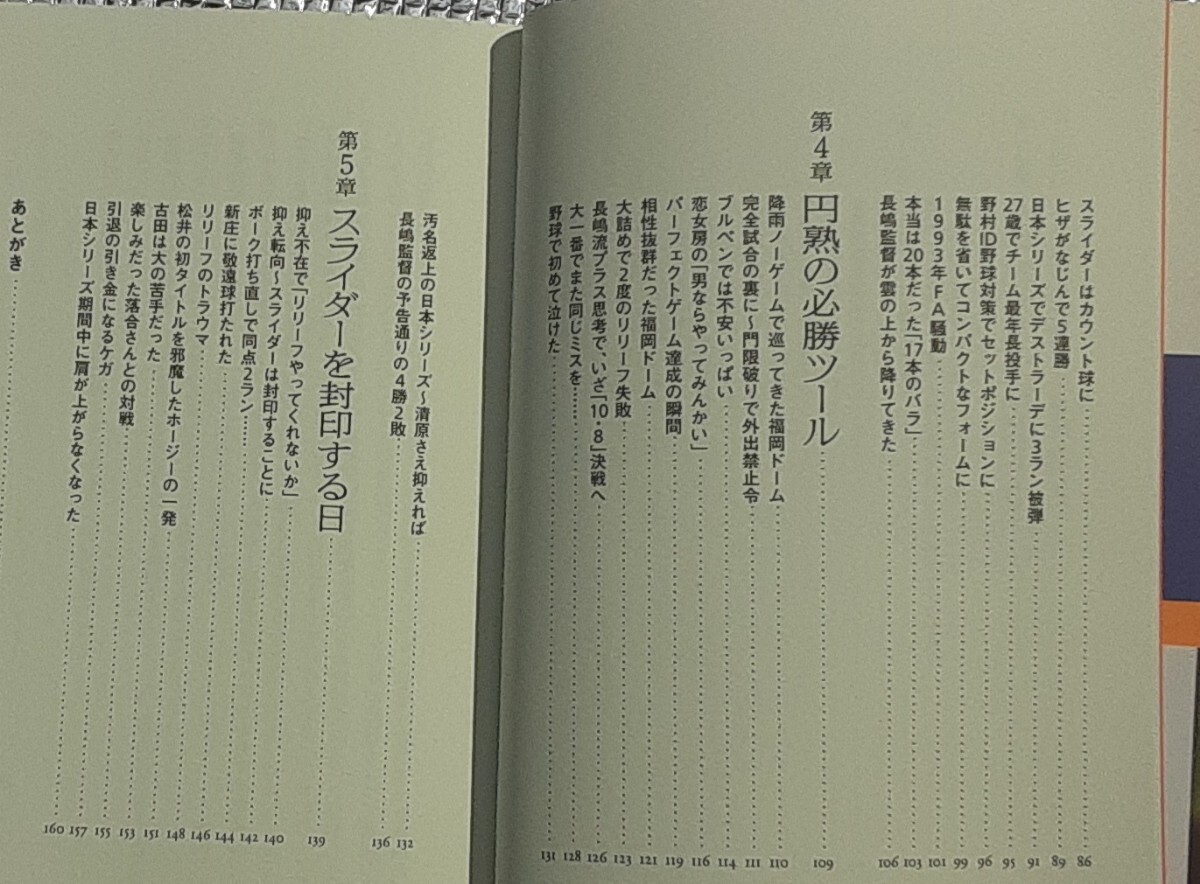 スライダーはカウント球に……86
ヒザがなじんで5連勝……89
日本シリーズでデストラーデに3ラン被弾……91
27歳でチーム最年長投手に……95
野村ID野球対策でセットポジションに……96
無駄を省いてコンパクトなフォームに……99
1993年FA騒動……101
本当は20本だった「17本のバラ」……103
長嶋監督が雲の上から降りてきた……106
第4章 円熟の必勝ツール……109
降雨ノーゲームで巡ってきた福岡ドーム……110
完全試合の裏に〜門限破りで外出禁止令……111
ブルペンでは不安いっぱい……114
恋女房の「男ならやってみんかい」……116
パーフェクトゲーム達成の瞬間……119
相性抜群だった福岡ドーム……121
大詰めで2度のリリーフ失敗……123
長嶋流プラス思考で、いざ「10・8」決戦へ……126
大一番でまた同じミスを……128
野球で初めて泣けた……131
汚名返上の日本シリーズ〜清原さえ抑えれば……132
長嶋監督の予告通りの4勝2敗……136
第5章 スライダーを封印する日……139
抑え不在で「リリーフやってくれないか」……140
抑え転向〜スライダーは封印することに……142
ボーク打ち直しで同点2ラン……144
新庄に敬遠球打たれた……146
リリーフのトラウマ……148
松井の初タイトルを邪魔したホージーの一発……151
古田は大の苦手だった……153
楽しみだった落合さんとの対戦……155
引退の引き金になるケガ……157
日本シリーズ期間中に肩が上がらなくなった……160
あとがき……